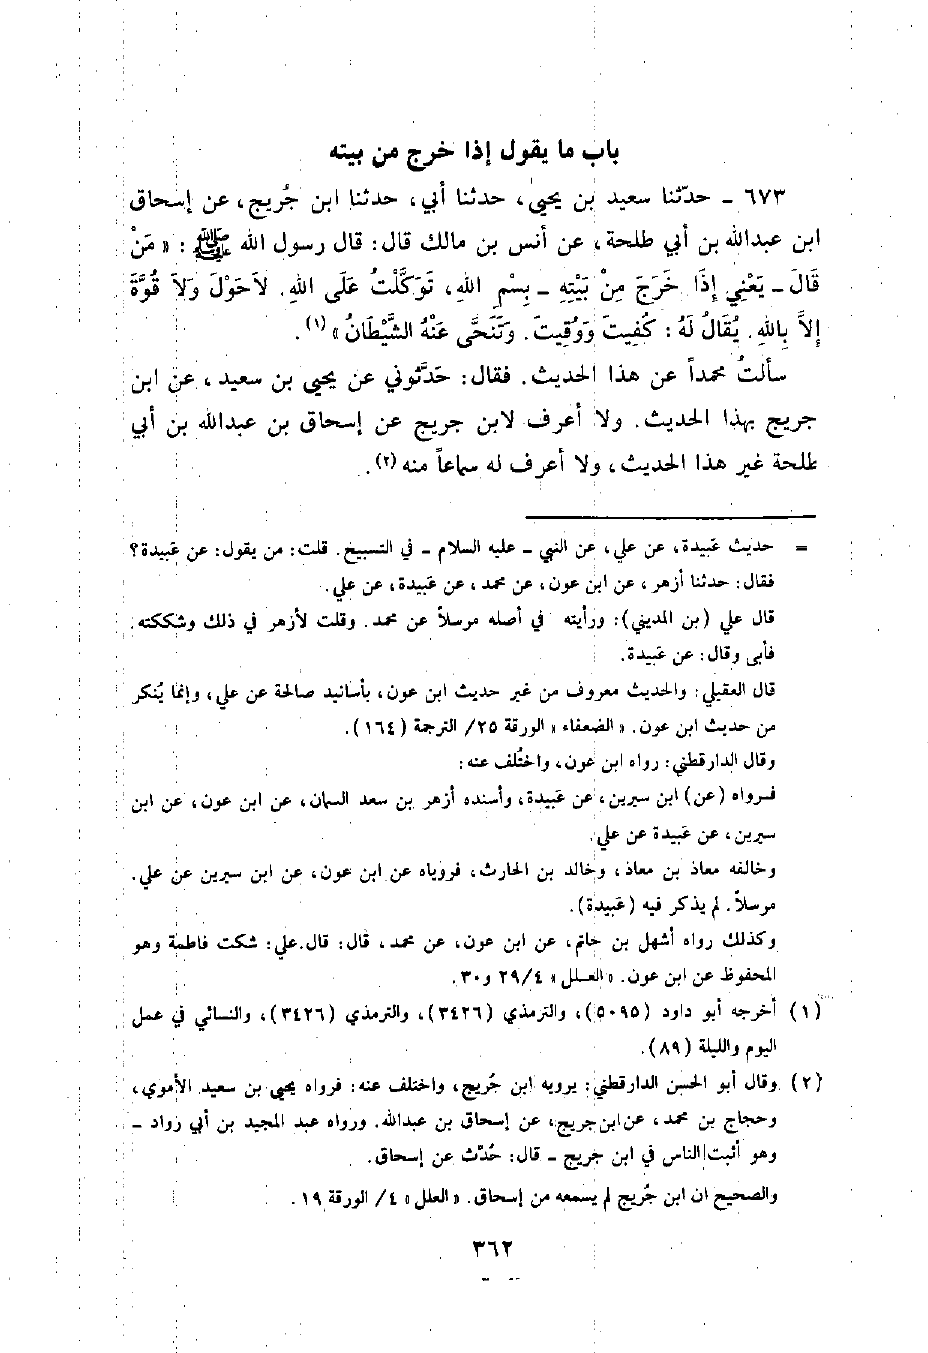 باب ما يقول إذا خرج من بيته
٦٧٣ ـ حدّثنا سعيد بن يحيى، حدثنا أبي، حدثنا ابن جُريج، عن إسحاق
ابن عبدالله بن أبي طلحة، عن أنس بن مالك قال: قال رسول الله ﷺ: «مَنْ
قَالَ ـ يَعْنِي إِذَا خَرَجَ مِنْ بَيْتِهِ ـ بِسْمِ اللهِ، تَوَكَّلْتُ عَلَى اللهِ. لاَحَوْلَ وَلاَ قُوَّةَ
إِلاَّ بِاللهِ. يُقَالُ لَهُ: كُفِيتَ وَوُقِيتَ. وَتَنَحَّى عَنْهُ الشَّيْطَانُ» (١).
سألتُ محمداً عن هذا الحديث. فقال: حَدَّثوني عن يحيى بن سعيد، عن ابن
جريج بهذا الحديث. ولا أعرف لابن جريج عن إسحاق بن عبدالله بن أبي
طلحة غير هذا الحديث، ولا أعرف له سماعاً منه (٢).
= حديث عَبيدة، عن علي، عن النبي ـ عليه السلام ـ في التسبيح. قلت: من يقول: عن عَبيدة؟
فقال: حدثنا أزهر، عن ابن عون، عن محمد، عن عَبيدة، عن علي.
قال علي (بن المديني): ورأيته في أصله مرسلاً عن محمد. وقلت لأزهر في ذلك وشككته.
فأبى وقال: عن عَبيدة.
قال العقيلي: والحديث معروف من غير حديث ابن عون، بأسانيد صالحة عن علي، وإنما يُنكر
من حديث ابن عون. «الضعفاء» الورقة ٢٥/ الترجمة (١٦٤).
وقال الدارقطني: رواه ابن عون، واختُلف عنه:
فرواه (عن) ابن سيرين، عن عَبيدة، وأسنده أزهر بن سعد السمان، عن ابن عون، عن ابن
سيرين، عن عَبيدة عن علي.
وخالفه معاذ بن معاذ، وخالد بن الحارث، فروياه عن ابن عون، عن ابن سيرين عن علي.
مرسلاً. لم يذكر فيه (عَبيدة).
وكذلك رواه أشهل بن حاتم، عن ابن عون، عن محمد، قال: قال علي: شكت فاطمة وهو
المحفوظ عن ابن عون. «العلل» ٢٩/٤ و٣٠.
(١) أخرجه أبو داود (٥٠٩٥)، والترمذي (٣٤٢٦)، والترمذي (٣٤٢٦)، والنسائي في عمل
اليوم والليلة (٨٩).
(٢) وقال أبو الحسن الدارقطني: يرويه ابن جُريج، واختلف عنه: فرواه يحيى بن سعيد الأموي،
وحجاج بن محمد، عن ابن جريج، عن إسحاق بن عبدالله. ورواه عبد المجيد بن أبي زواد ـ
وهو أثبت الناس في ابن جريج ـ قال: حُدّث عن إسحاق.
والصحيح ان ابن جُريج لم يسمعه من إسحاق. «العلل» ٤/ الورقة ١٩.
٣٦٢